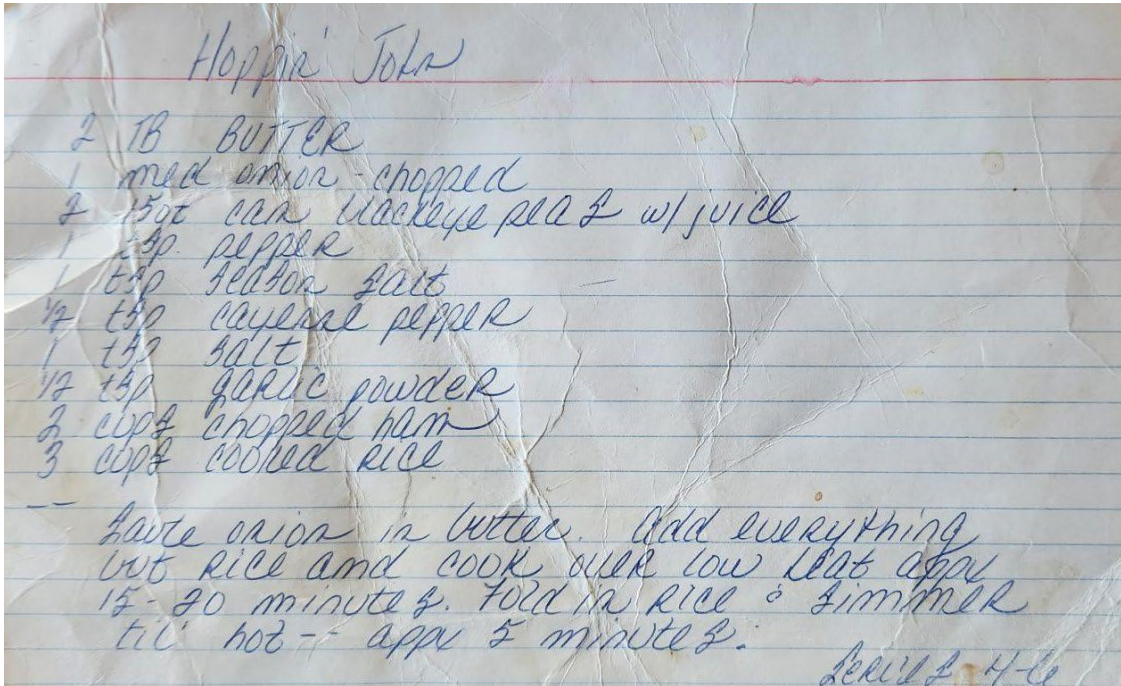 Hoppin' John
2 TB BUTTER
1 med onion - chopped
2 15oz can blackeye peas w/ juice
1 tsp. pepper
1 tsp season salt
1/2 tsp cayenne pepper
1 tsp salt
1/2 tsp garlic powder
2 cups chopped ham
3 cups cooked rice
--
Saute onion in butter. Add everything
but rice and cook over low heat appx
15-20 minutes. Fold in rice & simmer
til' hot -- appx 5 minutes.
Serves 4-6